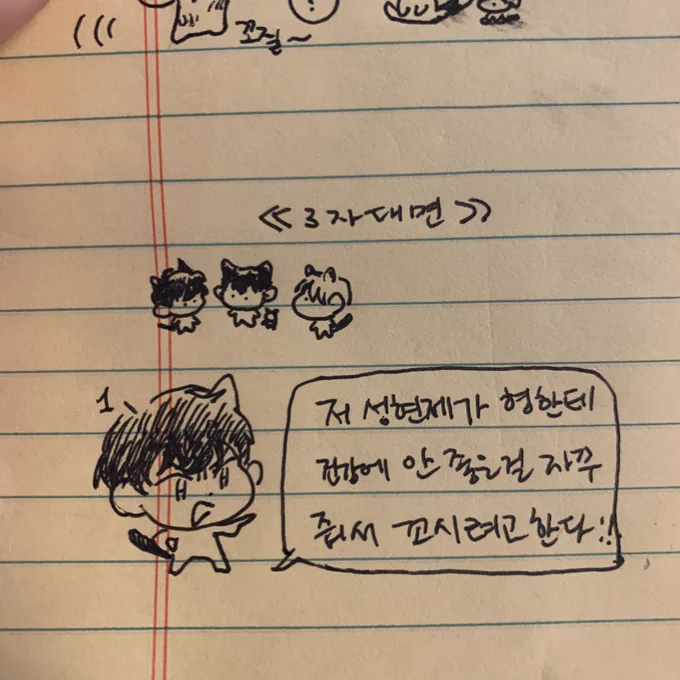 꼬질~
<<3자대면>>
1
저 성현제가 형한테
건강에 안 좋은걸 자꾸
줘서 꼬시려고한다!!